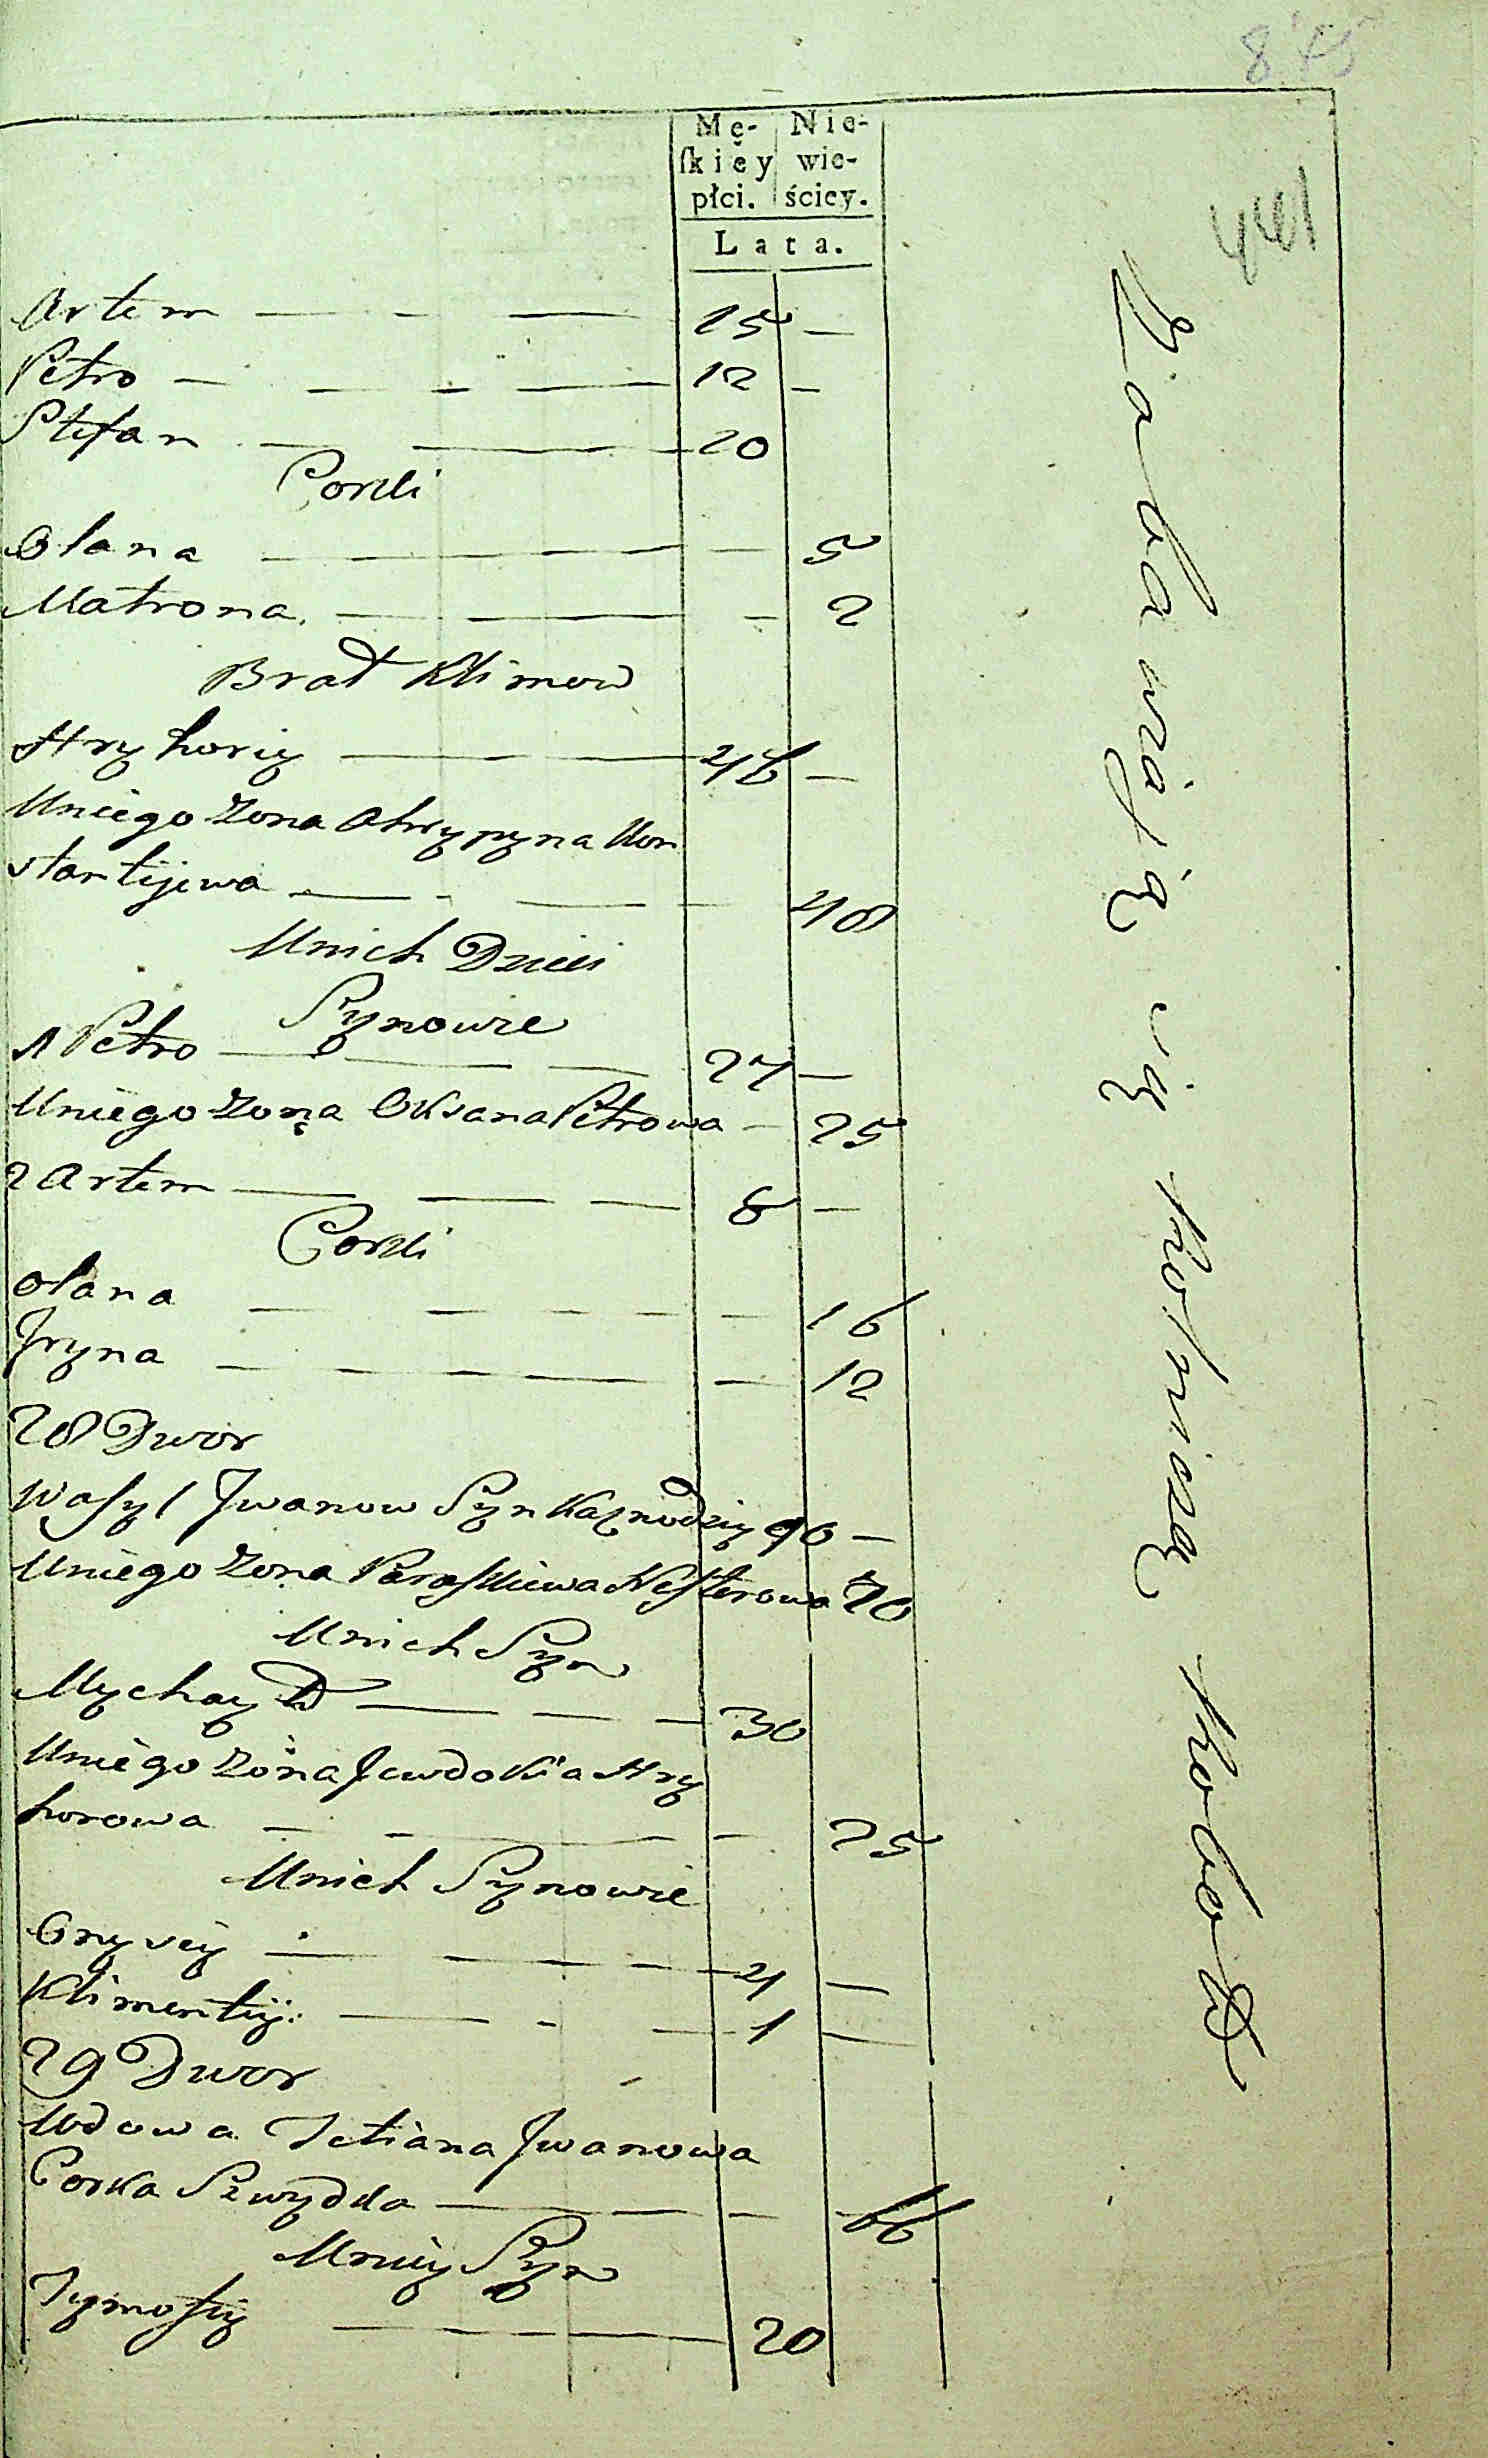 845
441
Mę- Nie-
ſkiéy wie-
płci. ściey.
Lata.
Artem — — — 15 —
Petro — — — — 12 —
Stefan — — 20
Corki
Olana — — — — 5
Matrona. — — — 2
Brat Klimow
Hryhoriy — — 46 —
Uniego Zona Ahrypyna Kon
stantijewa — - — — 48
Unich Dzieci
Synowie
1 Petro — — — 27 —
Uniego Zona Oksana Petrowa — 25
2 Artem — — — — 8 —
Corki
Olana — — — — — 16
Jryna — — — — — 12
28 Dwor
Wasyl Jwanow Syn 90 —
Uniego Zona Paraskiewa Nesterowa 70
Unich Syn
Mychayło — — — 30
Uniego Zona Jewdokia Hry
horowa — - — — 25
Unich Synowie
Onysiy — — — — — 4 —
Klimentiy. — - — 1 —
29 Dwor
Wdowa Tetiana Jwanowa
Corka Szwydka — — — — 66
Uniey Syn
Tymosiy — — — 20
Zabawiają się rolniczą robotą